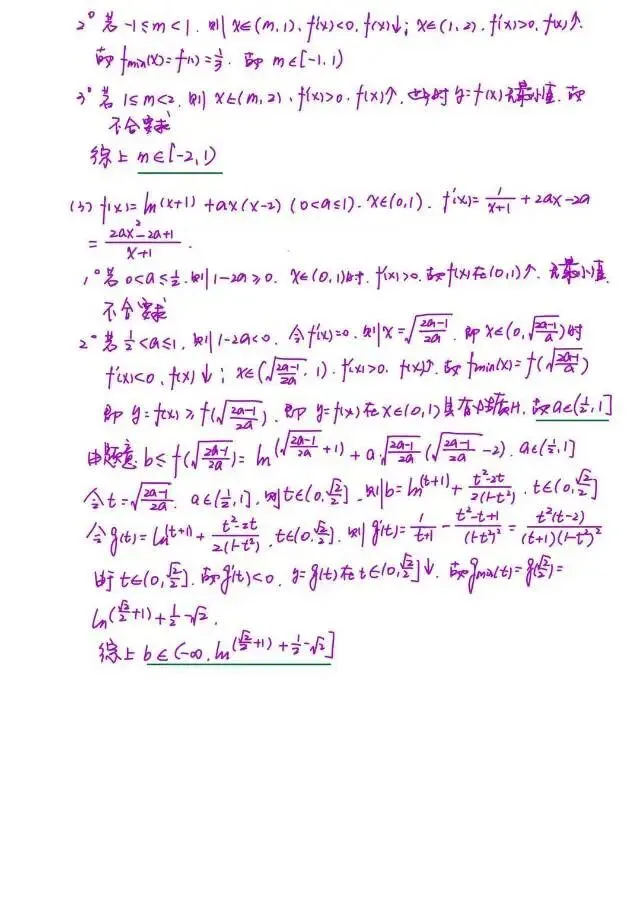 2° 若 -1≤m<1. 则 x∈(m,1), f'(x)<0, f(x)↓; x∈(1,2), f'(x)>0, f(x)↑.
故 fmin(x)=f(1)=1/3. 故 m∈[-1,1)
3° 若 1≤m<2. 则 x∈(m,2), f'(x)>0. f(x)↑. 此时 y=f(x)无最小值. 故
不合要求
综上 m∈[-2,1)
(3) f(x)=ln(x+1)+ax(x-2) (0<a≤1). x∈(0,1). f'(x)=1/(x+1)+2ax-2a
=(2ax²-2a+1)/(x+1).
1° 若 0<a≤1/2. 则 1-2a≥0. x∈(0,1)时. f'(x)>0. 故f(x)在(0,1)↑. 无最小值.
不合要求
2° 若 1/2<a≤1, 则 1-2a<0. 令f'(x)=0. 则 x=√((2a-1)/2a). 即 x∈(0,√((2a-1)/a))时
f'(x)<0, f(x)↓; x∈(√((2a-1)/2a), 1). f'(x)>0. f(x)↑. 故 fmin(x)=f(√((2a-1)/a))
即 y=f(x)≥f(√((2a-1)/2a)). 即 y=f(x)在x∈(0,1)具有性质H. 故a∈(1/2,1]
由题意 b≤f(√((2a-1)/2a))=ln(√((2a-1)/2a)+1)+a√((2a-1)/2a)(√((2a-1)/2a)-2). a∈(1/2,1]
令t=√((2a-1)/2a). a∈(1/2,1], 则t∈(0,√2/2]. 则b=ln(t+1)+(t²-2t)/(2(1-t²)). t∈(0,√2/2]
令g(t)=ln(t+1)+(t²-2t)/(2(1-t²)), t∈(0,√2/2]. 则g'(t)=1/(t+1)-(t²-t+1)/(1-t²)²=t²(t-2)/((t+1)(1-t²)²)
由于 t∈(0,√2/2]. 故g'(t)<0, y=g(t)在t∈(0,√2/2]↓. 故gmin(t)=g(√2/2)=
ln(√2/2+1)+1/2-√2.
综上 b∈(-∞, ln(√2/2+1)+1/2-√2]